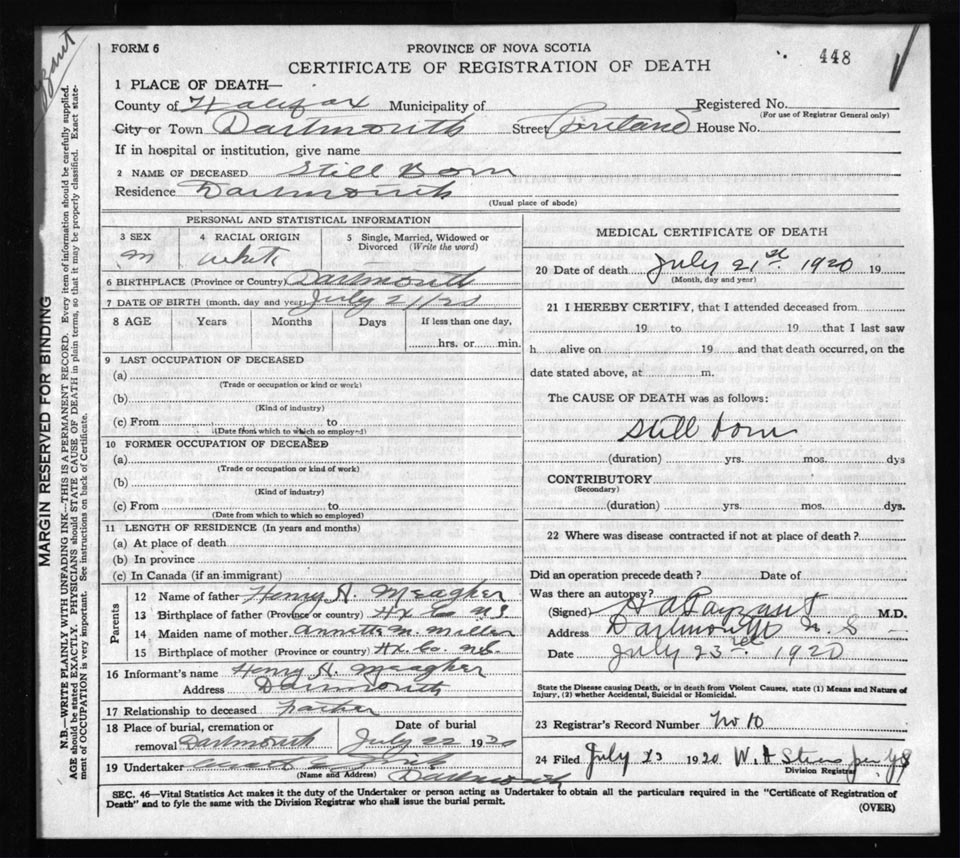 FORM 6
PROVINCE OF NOVA SCOTIA
CERTIFICATE OF REGISTRATION OF DEATH
448
1 PLACE OF DEATH—
County of Halifax Municipality of Registered No.
(For use of Registrar General only)
City or Town Dartmouth Street Portland House No.
If in hospital or institution, give name
2 NAME OF DECEASED Still Born
Residence Dartmouth
(Usual place of abode)
PERSONAL AND STATISTICAL INFORMATION
3 SEX
m
4 RACIAL ORIGIN
white
5 Single, Married, Widowed or
Divorced (Write the word)
6 BIRTHPLACE (Province or Country) Dartmouth
7 DATE OF BIRTH (month, day and year) July 21/20
8 AGE Years Months Days If less than one day,
hrs. or min.
9 LAST OCCUPATION OF DECEASED
(a)
(Trade or occupation or kind or work)
(b)
(Kind of industry)
(c) From to
(Date from which to which so employed)
10 FORMER OCCUPATION OF DECEASED
(a)
(Trade or occupation or kind of work)
(b)
(Kind of industry)
(c) From to
(Date from which to which so employed)
11 LENGTH OF RESIDENCE (In years and months)
(a) At place of death
(b) In province
(c) In Canada (if an immigrant)
Parents
12 Name of father Henry A. Meagher
13 Birthplace of father (Province or country) Hx Co NS
14 Maiden name of mother Annette M. Miller
15 Birthplace of mother (Province or country) Hx. Co. NS.
16 Informant's name Henry A. Meagher
Address Dartmouth
17 Relationship to deceased father
18 Place of burial, cremation or Date of burial
removal Dartmouth July 22 1920
19 Undertaker
(Name and Address) Dartmouth
MEDICAL CERTIFICATE OF DEATH
20 Date of death July 21st 1920 19
(Month, day and year)
21 I HEREBY CERTIFY, that I attended deceased from
19 to 19 that I last saw
h alive on 19 and that death occurred, on the
date stated above, at m.
The CAUSE OF DEATH was as follows:
Still born
(duration) yrs. mos. dys
CONTRIBUTORY
(Secondary)
(duration) yrs. mos. dys.
22 Where was disease contracted if not at place of death?
Did an operation precede death? Date of
Was there an autopsy?
(Signed) H A Payzant M.D.
Address Dartmouth N. S
Date July 23rd 1920
State the Disease causing Death, or in death from Violent Causes, state (1) Means and Nature of
Injury, (2) whether Accidental, Suicidal or Homicidal.
23 Registrar's Record Number No 10
24 Filed July 23 1920
Division Registrar
SEC. 46—Vital Statistics Act makes it the duty of the Undertaker or person acting as Undertaker to obtain all the particulars required in the "Certificate of Registration of
Death" and to fyle the same with the Division Registrar who shall issue the burial permit.
(OVER)
MARGIN RESERVED FOR BINDING
N.B.—WRITE PLAINLY WITH UNFADING INK—THIS IS A PERMANENT RECORD. Every item of information should be carefully supplied.
AGE should be stated EXACTLY. PHYSICIANS should STATE CAUSE OF DEATH in plain terms, so that it may be properly classified. Exact state-
ment of OCCUPATION is very important. See instructions on back of Certificate.